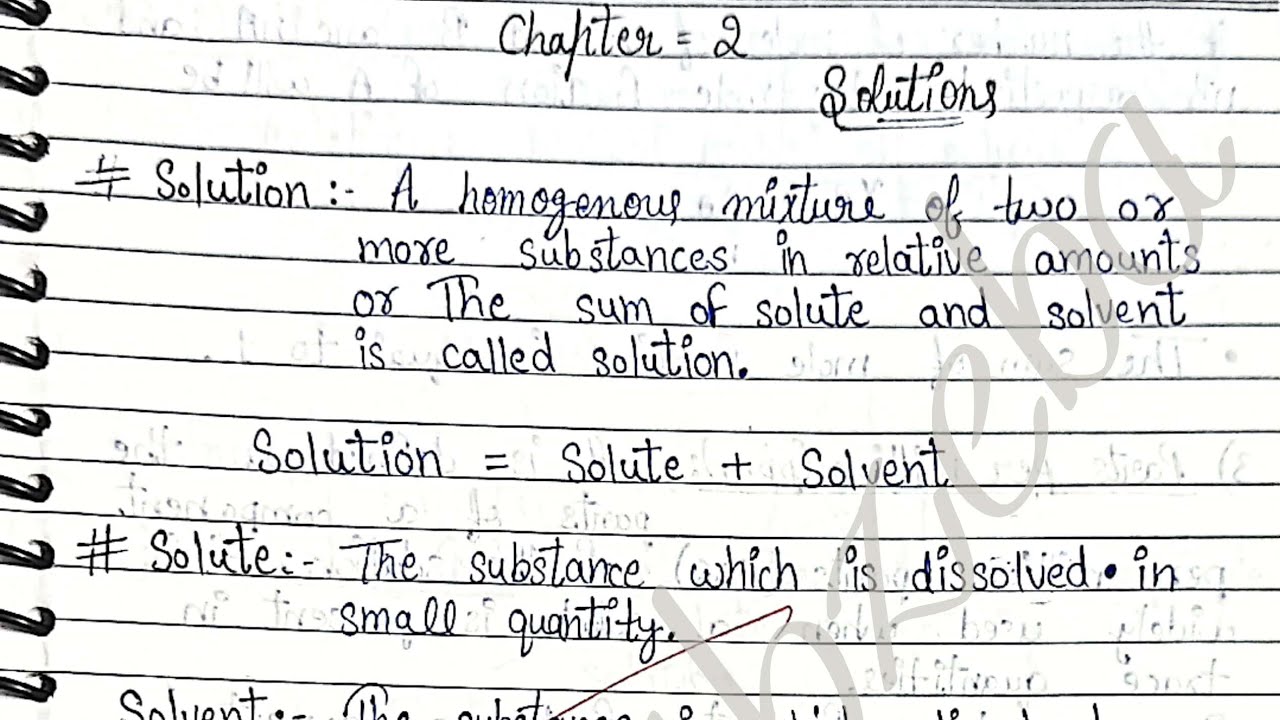 Chapter = 2
Solutions
# Solution :- A homogenous mixture of two or
more substances in relative amounts
or The sum of solute and solvent
is called solution.
Solution = Solute + Solvent
# Solute :- The substance which is dissolved. in
small quantity.
Solvent :- The substance